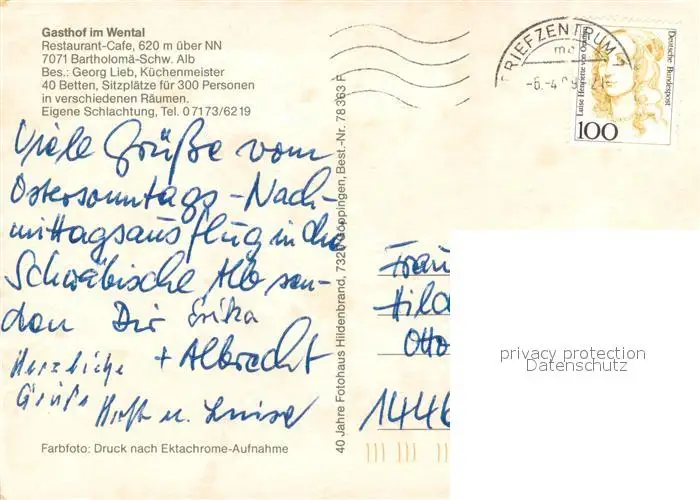 Gasthof im Wental
Restaurant-Cafe, 620 m über NN
7071 Bartholomä-Schw. Alb
Bes.: Georg Lieb, Küchenmeister
40 Betten, Sitzplätze für 300 Personen
in verschiedenen Räumen.
Eigene Schlachtung, Tel. 07173/6219
Viele Grüße vom
Ostersonntags-Nach-
mittagsausflug in die
Schwäbische Alb sen-
den Dir Erika
+ Albrecht
Herzliche
Grüße
u. Luise
Farbfoto: Druck nach Ektachrome-Aufnahme
40 Jahre Fotohaus Hildenbrand, 7320 Göppingen, Best.-Nr. 78363 F
BRIEFZENTRUM
-6.-4
Luise Henriette von Oranien
Deutsche Bundespost
100
Frau
Hild
Otto
1446
privacy protection
Datenschutz